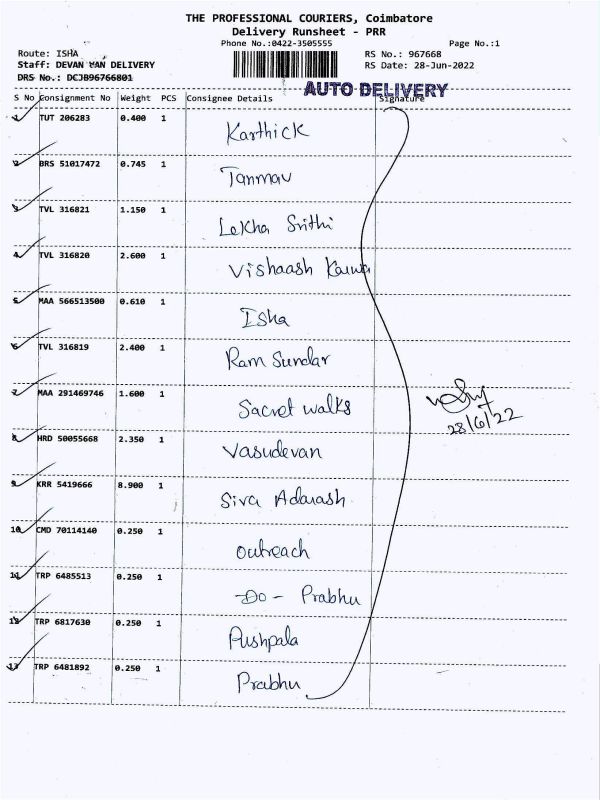 THE PROFESSIONAL COURIERS, Coimbatore
Delivery Runsheet - PRR
Phone No.:0422-3505555 Page No.:1
Route: ISHA RS No.: 967668
Staff: DEVAN VAN DELIVERY RS Date: 28-Jun-2022
DRS No.: DCJB96766801
AUTO DELIVERY
S No Consignment No Weight PCS Consignee Details Signature
1 TUT 206283 0.400 1 Karthick
2 BRS 51017472 0.745 1 Tanmav
3 TVL 316821 1.150 1 Lekha Srithi
4 TVL 316820 2.600 1 Vishaash
5 MAA 566513500 0.610 1 Isha
6 TVL 316819 2.400 1 Ram Sundar
7 MAA 291469746 1.600 1 Sacret walks
8 HRD 50055668 2.350 1 Vasudevan
9 KRR 5419666 8.900 1 Siva Adarash
28/6/22
10 CMD 70114140 0.250 1 outreach
11 TRP 6485513 0.250 1 -Do- Prabhu
12 TRP 6817630 0.250 1 Pushpala
13 TRP 6481892 0.250 1 Prabhu